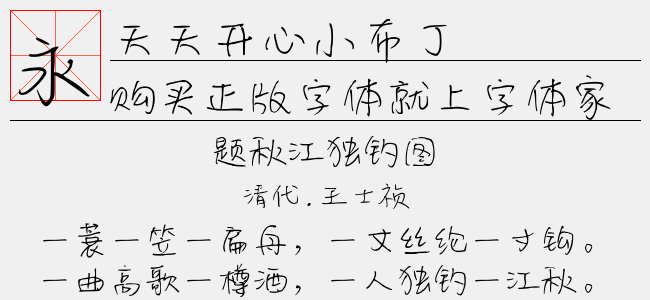 永
天天开心小布丁
购买正版字体就上字体家
题秋江独钓图
清代.王士祯
一蓑一笠一扁舟，一丈丝纶一寸钩。
一曲高歌一樽酒，一人独钓一江秋。